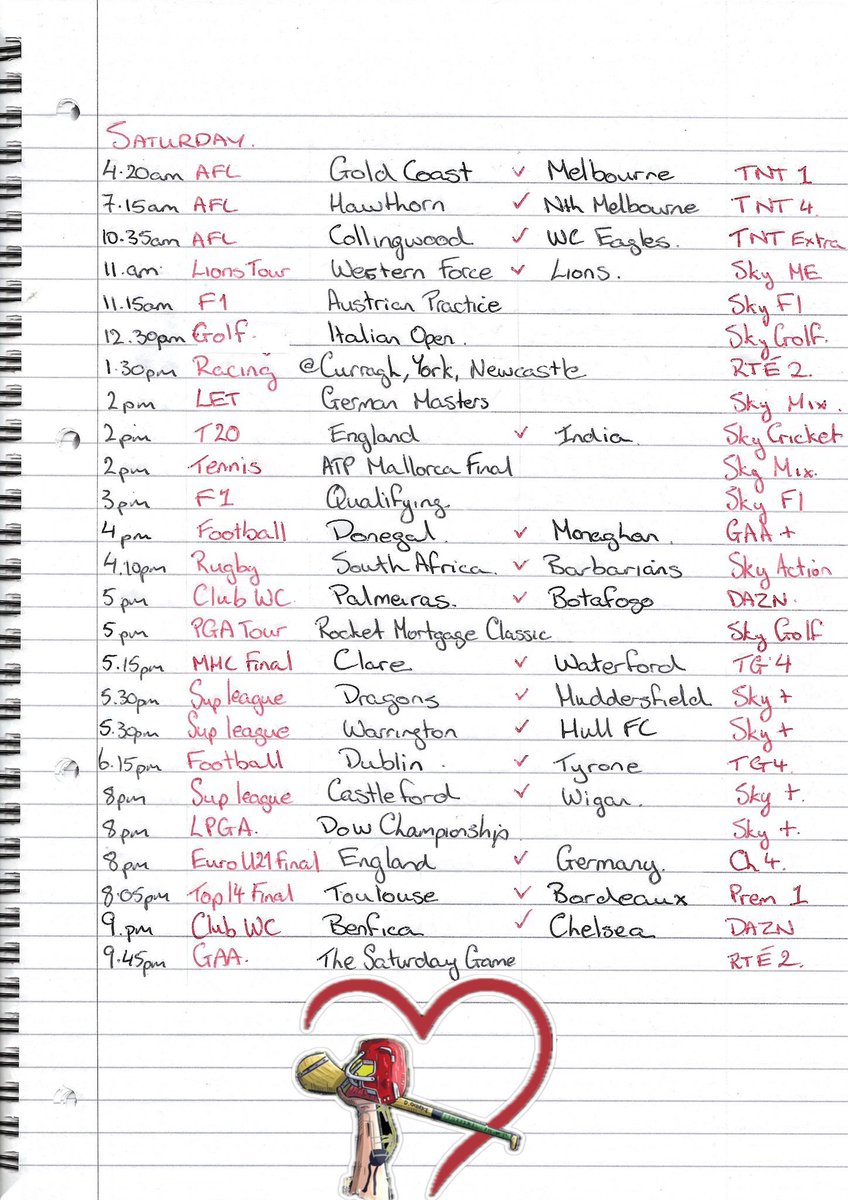 SATURDAY.
4.20am AFL Gold Coast v Melbourne TNT 1
7.15am AFL Hawthorn v Nth Melbourne TNT 4
10.35am AFL Collingwood v WC Eagles. TNT Extra
11.am Lions Tour Western Force v Lions. Sky ME
11.15am F1 Austrian Practice Sky F1
12.30pm Golf. Italian Open. Sky Golf.
1.30pm Racing @Curragh, York, Newcastle RTÉ 2.
2pm LET German Masters Sky Mix.
2pm T20 England v India. Sky Cricket
2pm Tennis ATP Mallorca Final Sky Mix.
3pm F1 Qualifying. Sky F1
4pm Football Donegal. v Monaghan. GAA +
4.10pm Rugby South Africa. v Barbarians Sky Action
5pm Club WC. Palmeiras. v Botafogo DAZN.
5pm PGA Tour Rocket Mortgage Classic Sky Golf
5.15pm MHC Final Clare v Waterford TG4
5.30pm Sup league Dragons v Huddersfield Sky +
5.30pm Sup league Warrington v Hull FC Sky +
6.15pm Football Dublin. v Tyrone TG4.
8pm Sup league Castleford v Wigan. Sky +.
8pm LPGA. Dow Championship Sky +.
8pm Euro U21 Final England v Germany. Ch 4.
8.05pm Top 14 Final Toulouse v Bordeaux Prem 1
9.pm Club WC Benfica v Chelsea DAZN
9.45pm GAA. The Saturday Game RTÉ 2.